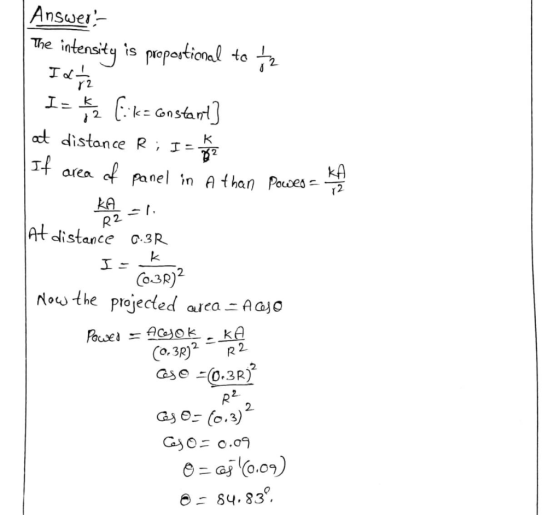 Answer:-
The intensity is propostional to 1/r2
I ∝ 1/r2
I = k/r2 [∵ k = Constant]
at distance R ; I = k/R2
If area of panel in A than Power = kA/r2
kA/R2 = 1.
At distance 0.3R
I = k/(0.3R)2
Now the projected area = A Cosθ
Power = ACosθ k/(0.3R)2 = kA/R2
Cosθ = (0.3R)2/R2
Cos θ = (0.3)2
Cosθ = 0.09
θ = Cos-1(0.09)
θ = 84.83°.